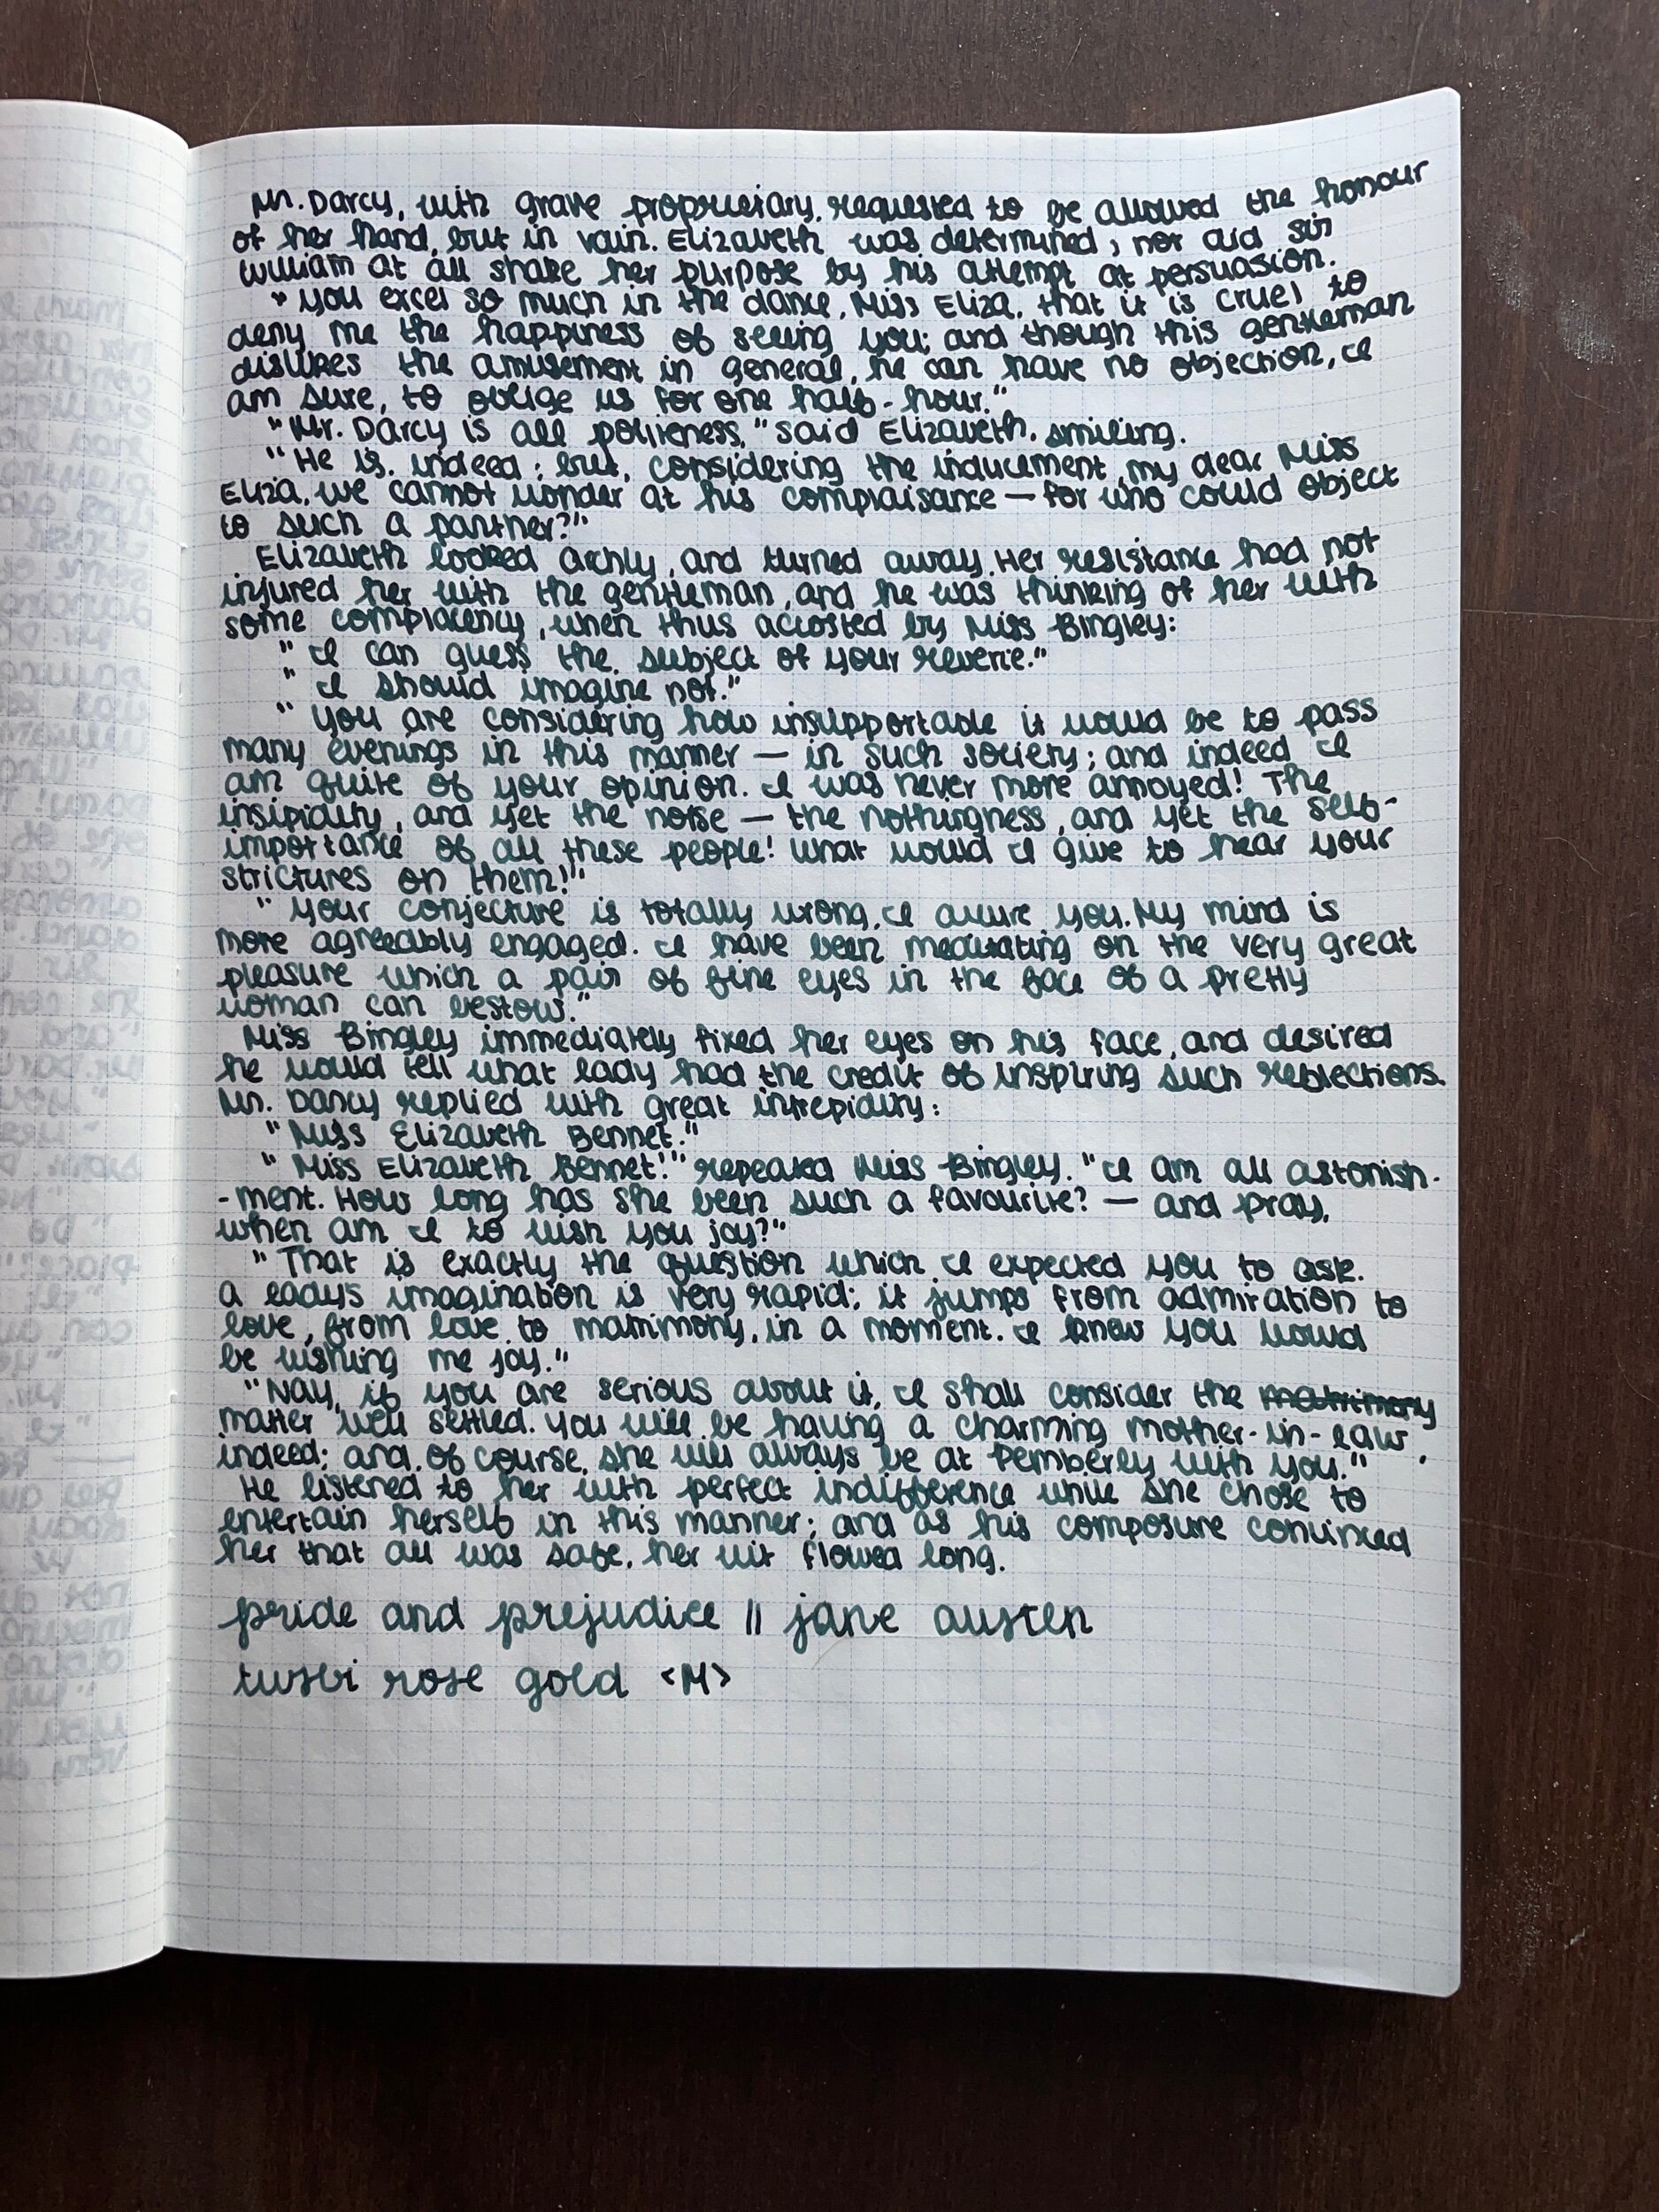 Mr. Darcy, with grave proprietary, requested to be allowed the honour
of her hand, but in vain. Elizabeth was determined; nor did sir
William at all shake her purpose by his attempt at persuasion.
"You excel so much in the dance, Miss Eliza, that it is cruel to
deny me the happiness of seeing you; and though this gentleman
dislikes the amusement in general, he can have no objection, I
am sure, to oblige us for one half-hour."
"Mr. Darcy is all politeness," said Elizabeth, smiling.
"He is, indeed; but, considering the inducement, my dear Miss
Eliza, we cannot wonder at his complaisance — for who could object
to such a partner?"
Elizabeth looked archly, and turned away. Her resistance had not
injured her with the gentleman, and he was thinking of her with
some complacency, when thus accosted by Miss Bingley:
"I can guess the subject of your reverie."
"I should imagine not."
"You are considering how insupportable it would be to pass
many evenings in this manner — in such society; and indeed I
am quite of your opinion. I was never more annoyed! The
insipidity, and yet the noise — the nothingness, and yet the self-
importance of all these people! What would I give to hear your
strictures on them!"
"Your conjecture is totally wrong, I assure you. My mind is
more agreeably engaged. I have been meditating on the very great
pleasure which a pair of fine eyes in the face of a pretty
woman can bestow."
Miss Bingley immediately fixed her eyes on his face, and desired
he would tell what lady had the credit of inspiring such reflections.
Mr. Darcy replied with great intrepidity:
"Miss Elizabeth Bennet."
"Miss Elizabeth Bennet!" repeated Miss Bingley. "I am all astonish-
-ment. How long has she been such a favourite? — and pray,
when am I to wish you joy?"
"That is exactly the question which I expected you to ask.
a lady's imagination is very rapid; it jumps from admiration to
love, from love to matrimony, in a moment. I knew you would
be wishing me joy."
"Nay, if you are serious about it, I shall consider the matrimony
matter well settled. You will be having a charming mother-in-law,
indeed; and, of course, she will always be at Pemberley with you."
He listened to her with perfect indifference while she chose to
entertain herself in this manner; and as his composure convinced
her that all was safe, her wit flowed long.
pride and prejudice || jane austen
twsbi rose gold <M>